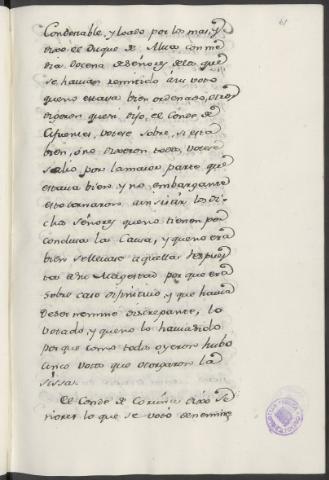 61
Condestable, y loado por los mas, y
dixo el Duque de Alva con me
dia docena de Señores de la que
se havian remitido à su voto
que no estava bien ordenado, otros
dixeron que si, dijo, el Conde de
Cifuentes, votese sobre, si està
bien, ó no dixeron todos, votese
salio por la maior parte que
estava bien y no embargante
esto tornaron a insistir los di-
chos Señores que no tienen por
conclusa la Causa, y que no era
bien se llevase aquella respues
ta a su Magestad por que era
sobre caso difinitivo, y que havia
de ser nemine discrepante, lo
votado, y que no lo havia sido
por que como todos oyeron hubo
cinco votos que otorgaron la
sissa.
El Conde de Coruña dixo Se
ñores lo que se votó de nemine